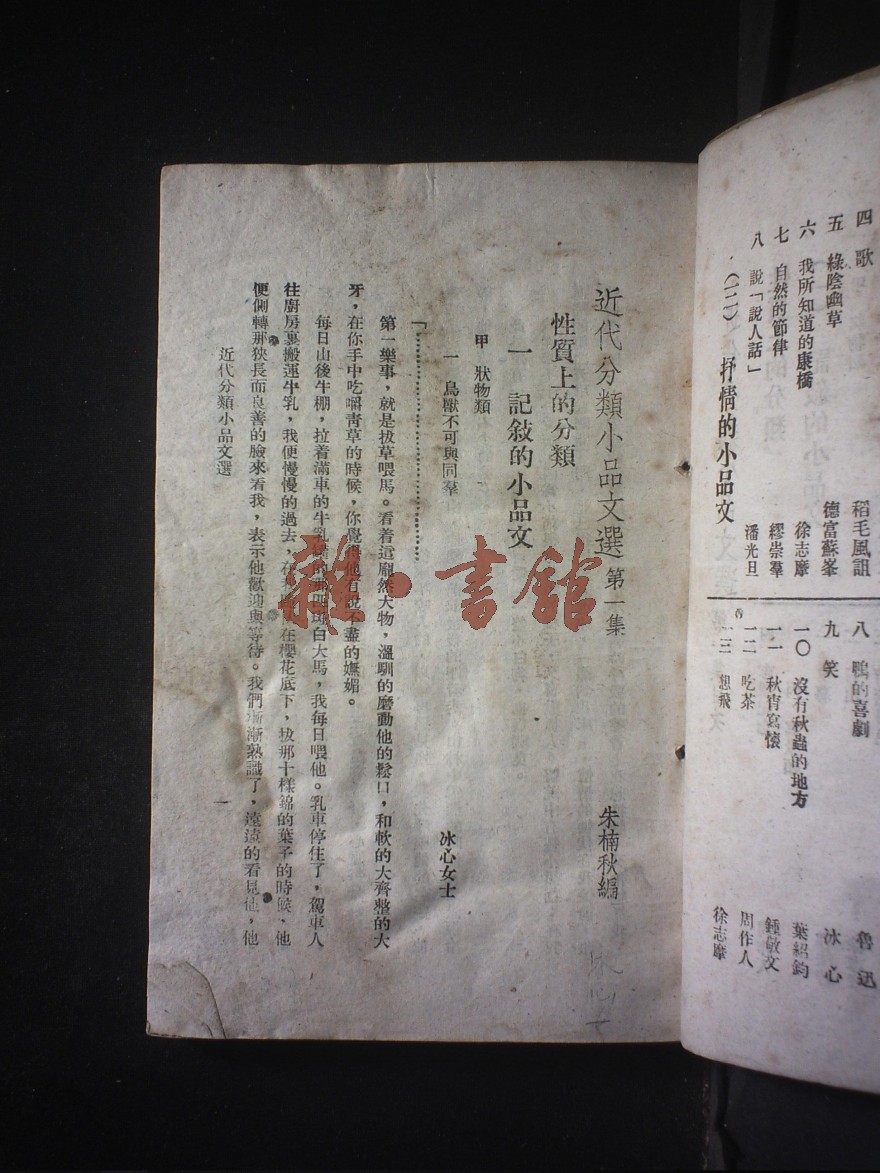 四 歌 稻毛風詛
五 綠陰幽草 德富蘇峯
六 我所知道的康橋 徐志摩
七 自然的節律 繆崇羣
八 說「說人話」 潘光旦
(二) 抒情的小品文
八 鴨的喜劇 魯迅
九 笑 冰心
一〇 沒有秋蟲的地方 葉紹鈞
一一 秋宵寫懷 鍾敬文
一二 吃茶 周作人
一三 想飛 徐志摩
近代分類小品文選 第一集 朱楠秋編
性質上的分類
一 記敍的小品文
甲 狀物類
一 鳥獸不可與同羣 冰心女士
「……………………
第一樂事,就是拔草喂馬。看着這龐然大物,溫馴的磨動他的鬆口,和軟的大齊整的大
牙,在你手中吃嚼靑草的時候,你覺得他有說不盡的嫵媚。
每日山後牛棚,拉着滿車的牛乳罐的那匹斑白大馬,我每日喂他。乳車停住了,駕車人
往廚房裏搬運牛乳,我便慢慢的過去,在 在櫻花底下,拔那十樣錦的葉子的時候,他
便側轉那狹長而良善的臉來看我,表示他歡迎與等待。我們漸漸熟識了,遠遠的看見他,他
近代分類小品文選 一
雜·書館